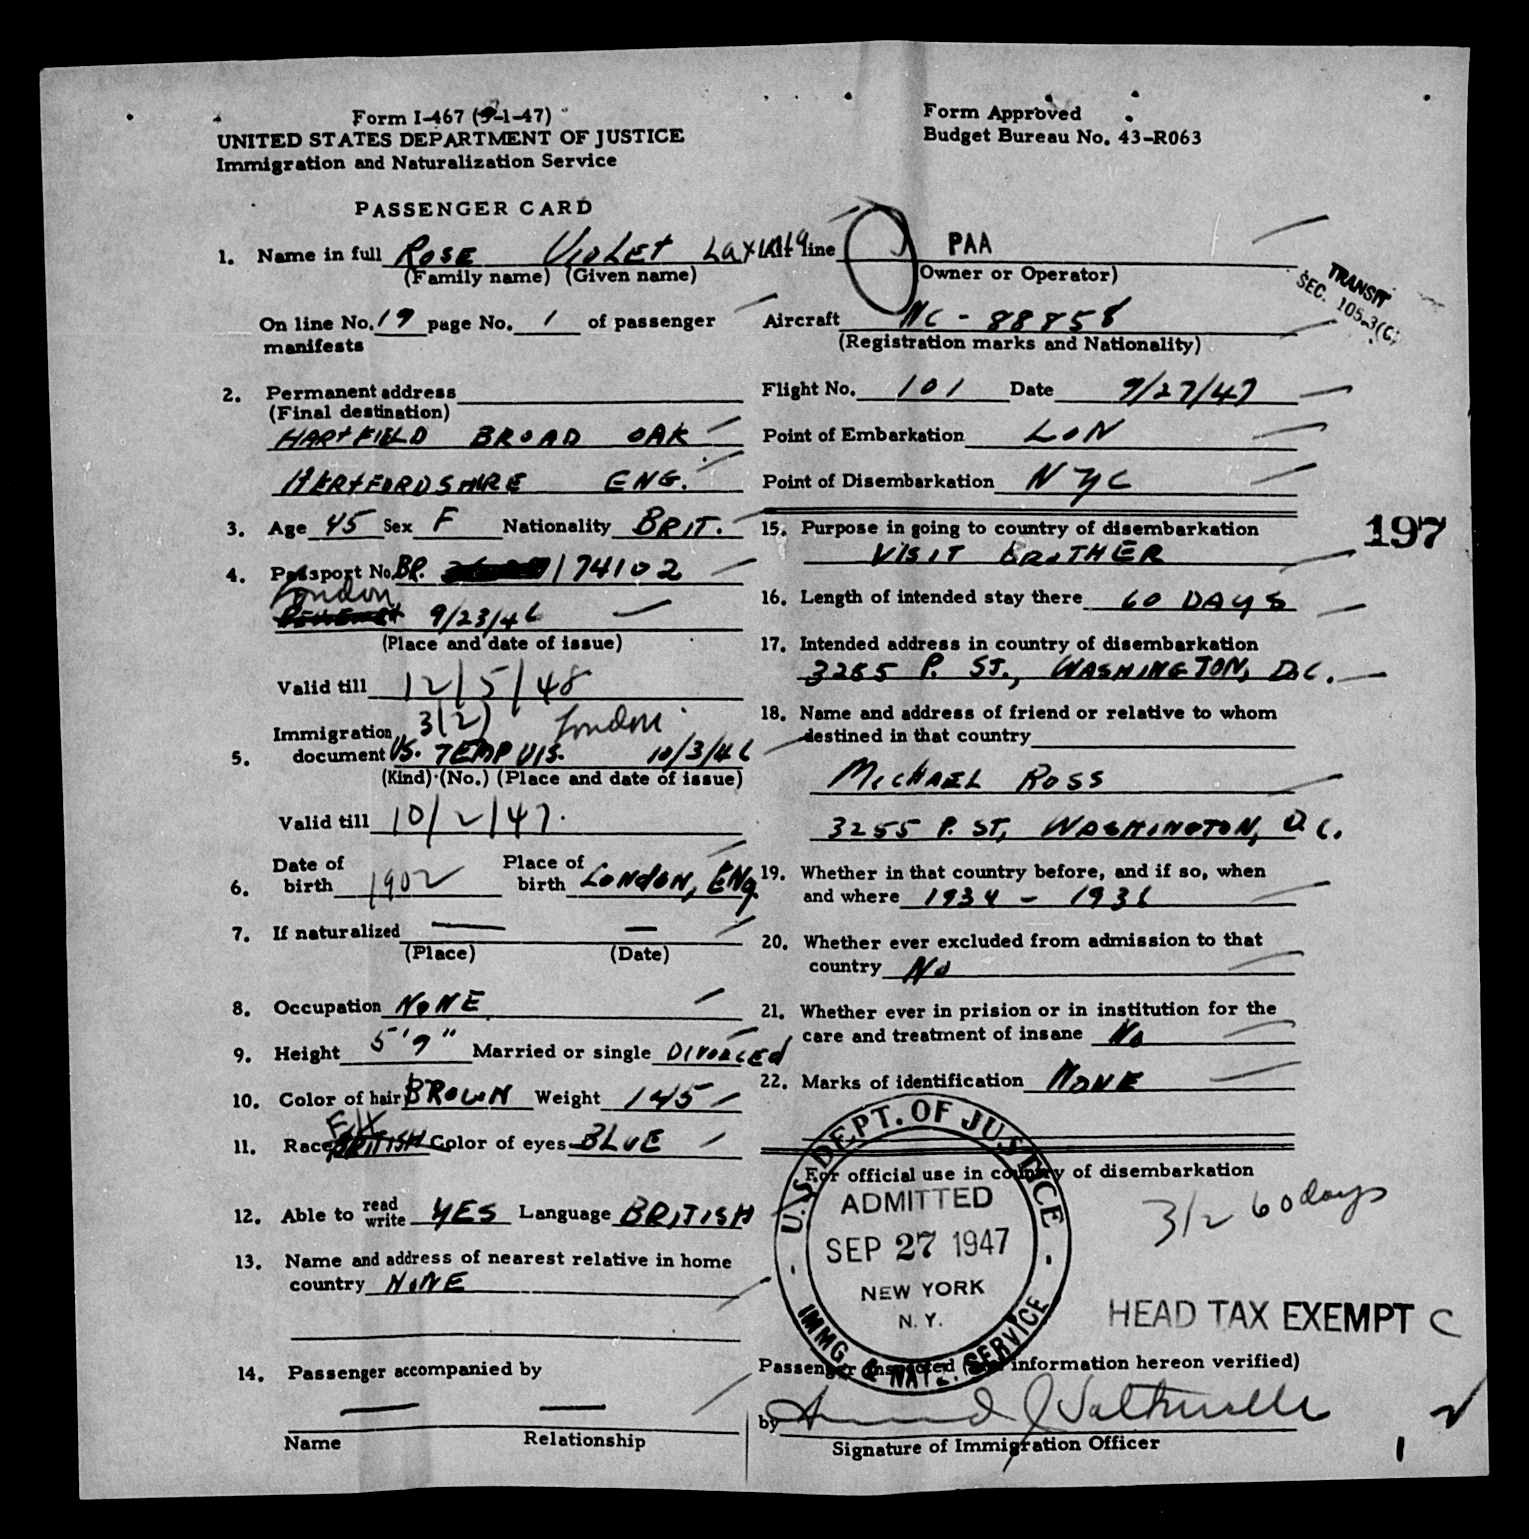 Form I-467 (9-1-47)
UNITED STATES DEPARTMENT OF JUSTICE
Immigration and Naturalization Service
Form Approved
Budget Bureau No. 43-R063
PASSENGER CARD
1. Name in full ROSE VIOLET
(Family name) (Given name)
On line No. 19 page No. 1 of passenger
manifests
2. Permanent address
(Final destination)
HARTFIELD BROAD OAK
HERTFORDSHIRE ENG.
3. Age 45 Sex F Nationality BRIT.
4. Passport No. BR. 174102
London
9/23/46
(Place and date of issue)
Valid till 12/5/48
3(2) London
Immigration
5. document US. TEMP VIS. 10/3/46
(Kind) (No.) (Place and date of issue)
Valid till 10/2/47.
6. Date of birth 1902 Place of birth LONDON, ENG.
7. If naturalized — —
(Place) (Date)
8. Occupation NONE
9. Height 5'9" Married or single DIVORCED
10. Color of hair BROWN Weight 145
11. Race BRITISH Color of eyes BLUE
12. Able to read write YES Language BRITISH
13. Name and address of nearest relative in home
country NONE
14. Passenger accompanied by
— —
Name Relationship
line PAA
(Owner or Operator)
TRANSIT
SEC. 105.3(C)
Aircraft NC-88858
(Registration marks and Nationality)
Flight No. 101 Date 9/27/47
Point of Embarkation LON
Point of Disembarkation NYC
197
15. Purpose in going to country of disembarkation
VISIT BROTHER
16. Length of intended stay there 60 DAYS
17. Intended address in country of disembarkation
3255 P. ST., WASHINGTON, D.C.
18. Name and address of friend or relative to whom
destined in that country
MICHAEL ROSS
3255 P. ST, WASHINGTON, D.C.
19. Whether in that country before, and if so, when
and where 1934 - 1936
20. Whether ever excluded from admission to that
country No
21. Whether ever in prision or in institution for the
care and treatment of insane No
22. Marks of identification NONE
For official use in country of disembarkation
U.S. DEPT. OF JUSTICE
ADMITTED
SEP 27 1947
NEW YORK
N. Y.
IMMG. & NATZ. SERVICE
3/2 60 days
HEAD TAX EXEMPT C
Passenger inspected (and information hereon verified)
by
Signature of Immigration Officer
1